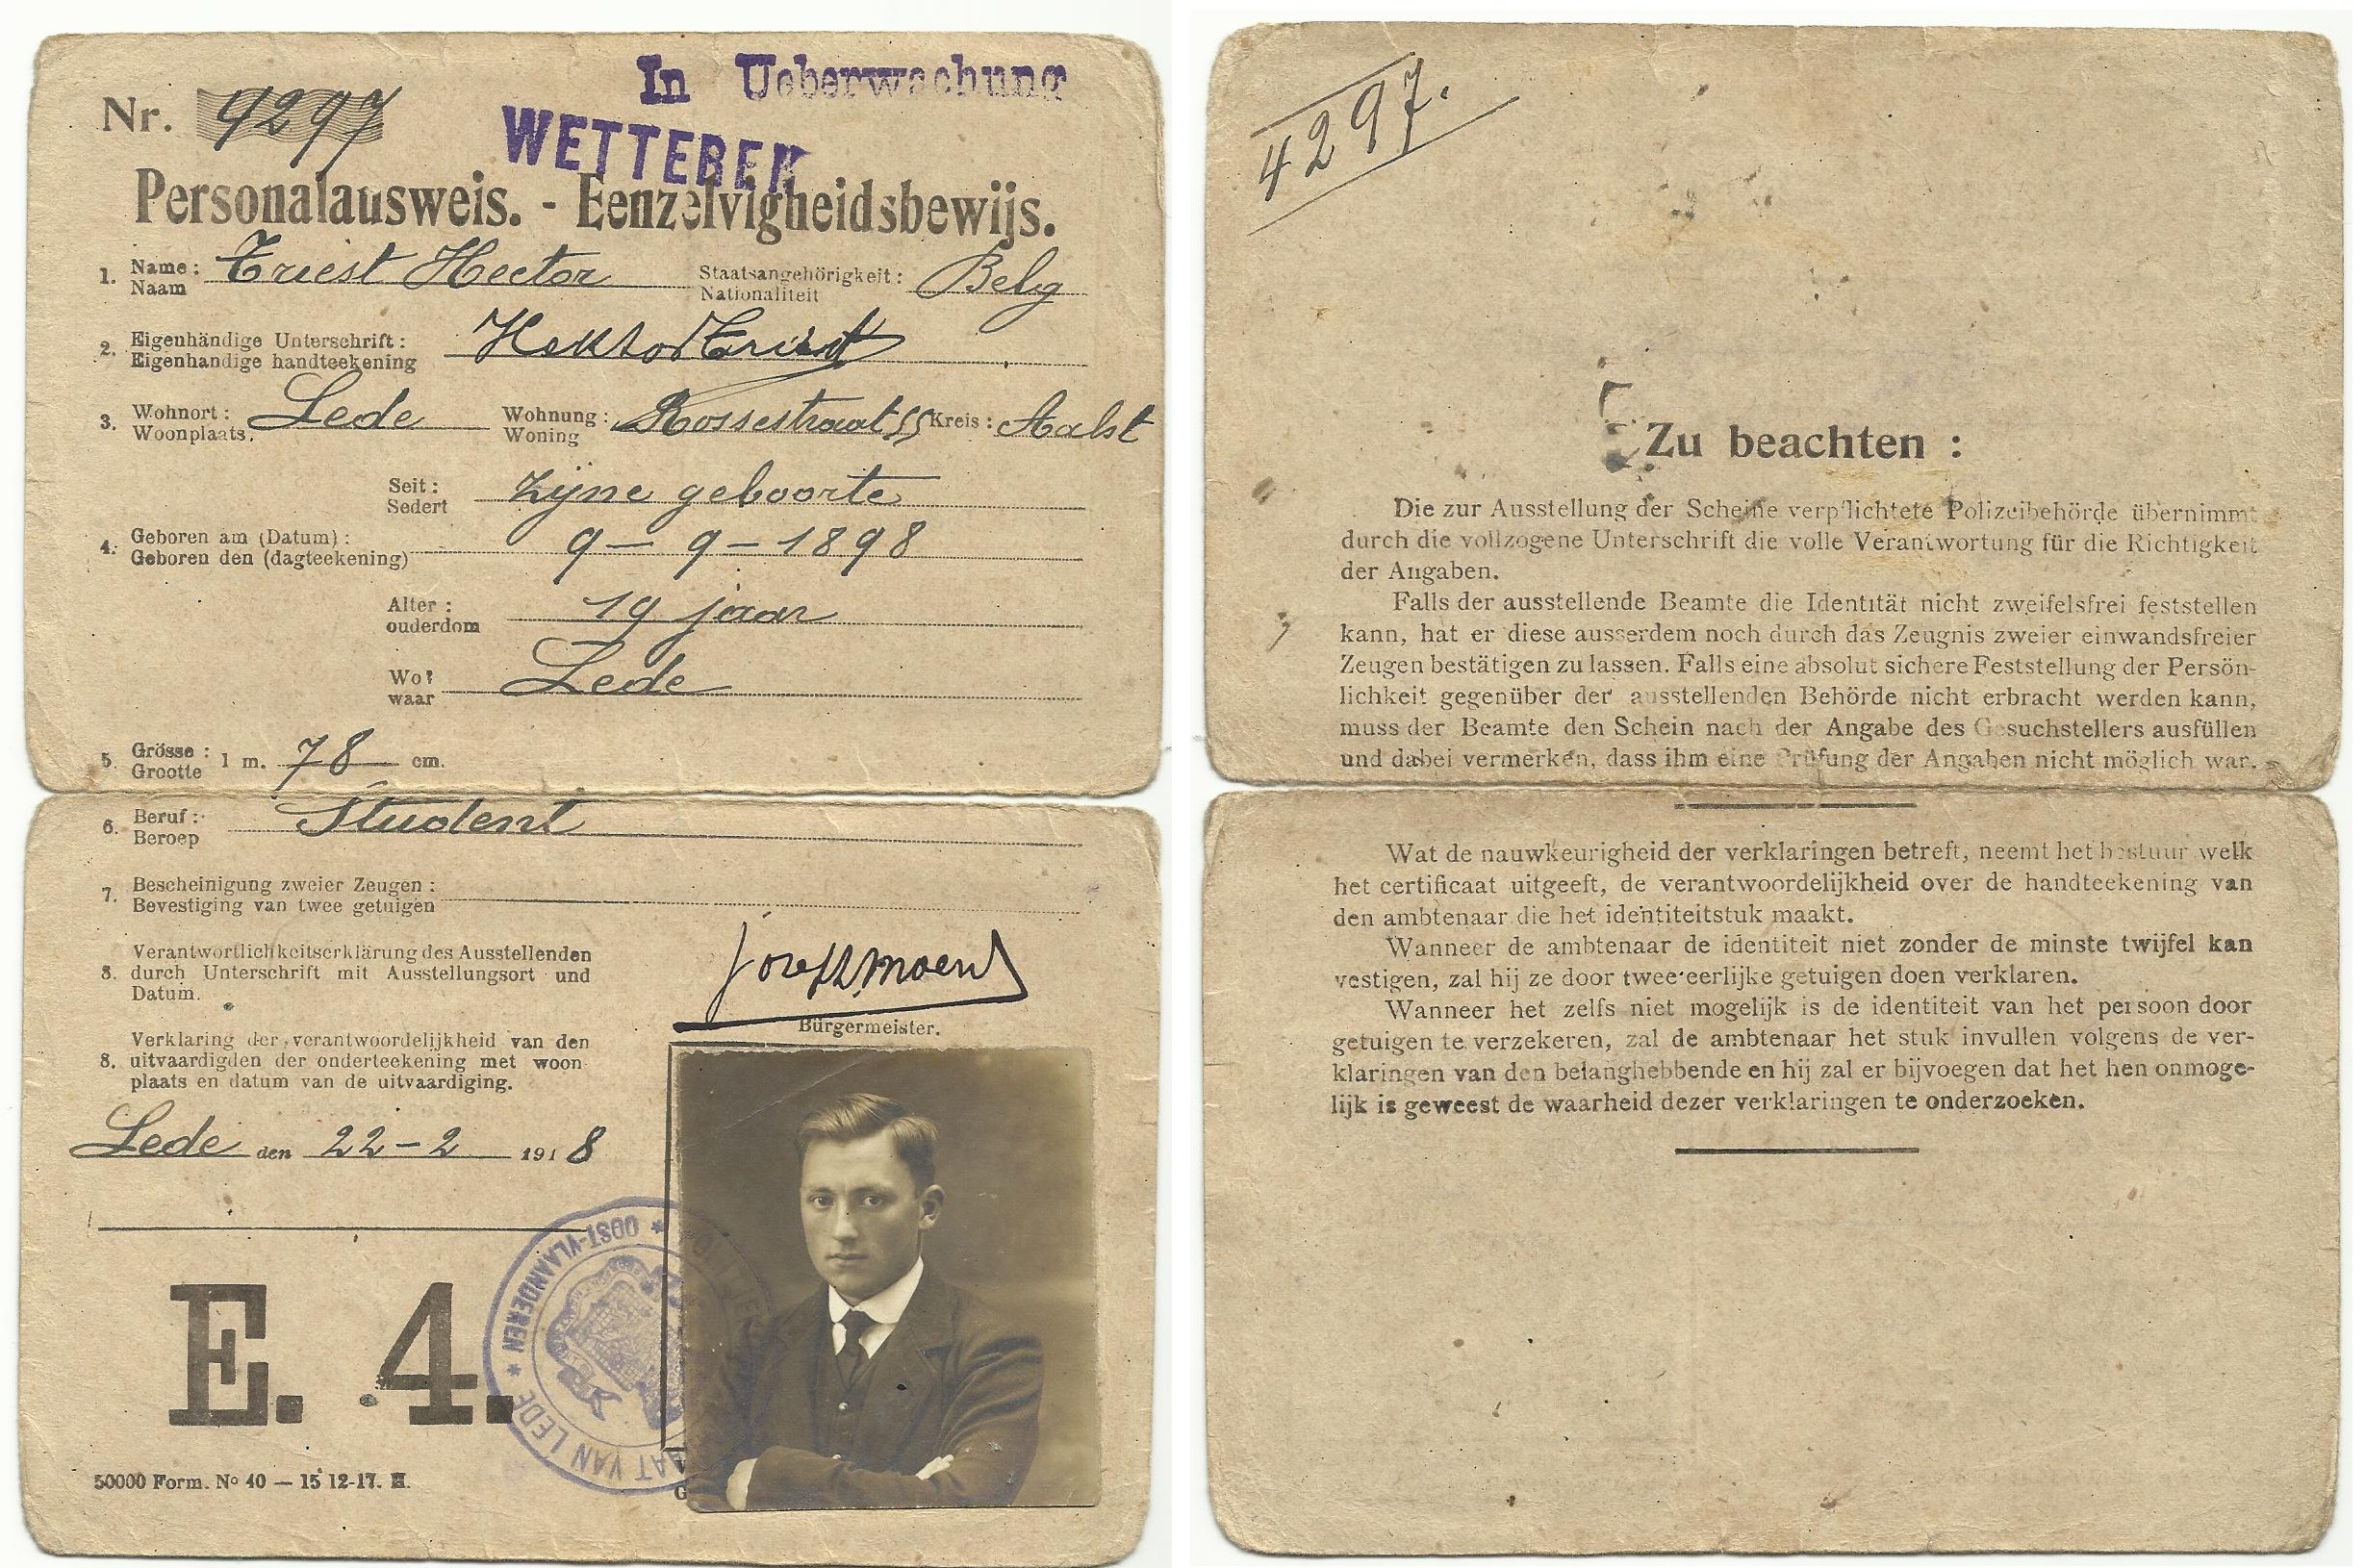 In Ueberwachung
Nr. 4297
WETTEREN
Personalausweis. - Eenzelvigheidsbewijs.
1. Name : Triest Hector Staatsangehörigkeit : Belg
Naam Nationaliteit
2. Eigenhändige Unterschrift : Hektor Triest
Eigenhandige handteekening
3. Wohnort : Lede Wohnung : Rossestraat 55 Kreis : Aalst
Woonplaats. Woning
Seit : zijne geboorte
Sedert
4. Geboren am (Datum) : 9 - 9 - 1898
Geboren den (dagteekening)
Alter : 19 jaar
ouderdom
Wo? Lede
waar
5. Grösse : 1 m. 78 cm.
Grootte
6. Beruf : Student
Beroep
7. Bescheinigung zweier Zeugen :
Bevestiging van twee getuigen
Verantwortlichkeitserklärung des Ausstellenden
8. durch Unterschrift mit Ausstellungsort und
Datum.
Bürgermeister.
Verklaring der verantwoordelijkheid van den
8. uitvaardigden der onderteekening met woon
plaats en datum van de uitvaardiging.
Lede den 22-2 1918
E. 4.
OOST-VLAANDEREN * LEDE
50000 Form. No 40 — 15 12-17. H.
4297.
Zu beachten :
Die zur Ausstellung der Scheine verpflichtete Polizeibehörde übernimmt
durch die vollzogene Unterschrift die volle Verantwortung für die Richtigkeit
der Angaben.
Falls der ausstellende Beamte die Identität nicht zweifelsfrei feststellen
kann, hat er diese ausserdem noch durch das Zeugnis zweier einwandsfreier
Zeugen bestätigen zu lassen. Falls eine absolut sichere Feststellung der Persön-
lichkeit gegenüber der ausstellenden Behörde nicht erbracht werden kann,
muss der Beamte den Schein nach der Angabe des Gesuchstellers ausfüllen
und dabei vermerken, dass ihm eine Prüfung der Angaben nicht möglich war.
Wat de nauwkeurigheid der verklaringen betreft, neemt het bestuur welk
het certificaat uitgeeft, de verantwoordelijkheid over de handteekening van
den ambtenaar die het identiteitstuk maakt.
Wanneer de ambtenaar de identiteit niet zonder de minste twijfel kan
vestigen, zal hij ze door twee eerlijke getuigen doen verklaren.
Wanneer het zelfs niet mogelijk is de identiteit van het persoon door
getuigen te verzekeren, zal de ambtenaar het stuk invullen volgens de ver-
klaringen van den belanghebbende en hij zal er bijvoegen dat het hen onmoge-
lijk is geweest de waarheid dezer verklaringen te onderzoeken.